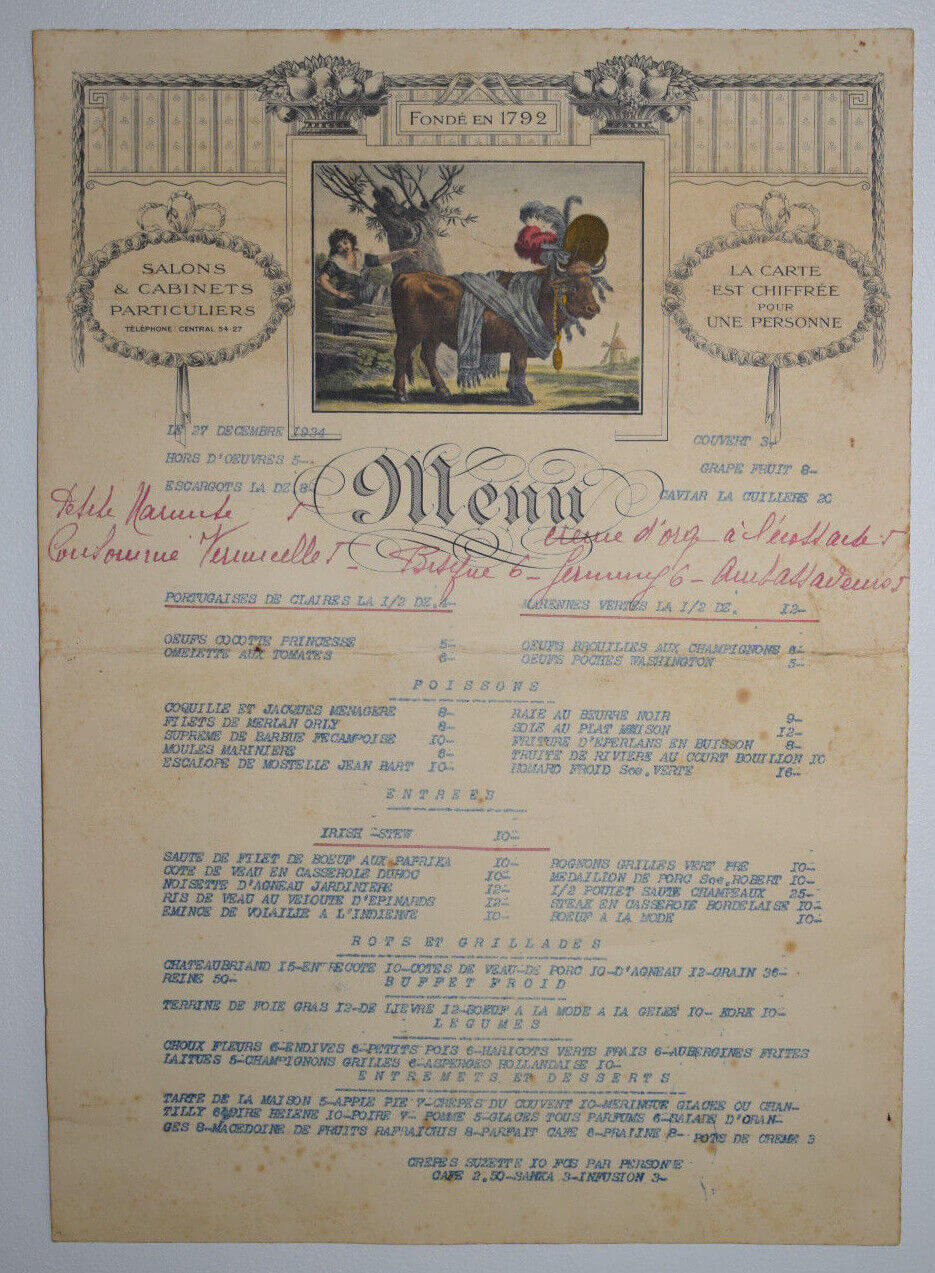 FONDÉ EN 1792
SALONS
& CABINETS
PARTICULIERS
TÉLÉPHONE: CENTRAL 54-27
LA CARTE
EST CHIFFRÉE
POUR
UNE PERSONNE
LE 27 DECEMBRE 1934
HORS D'OEUVRES 5-
ESCARGOTS LA DZ 8-
COUVERT 3-
GRAPE FRUIT 8-
CAVIAR LA CUILLERE 20
Menu
Petite Marmite 5
creme d'orge à l'écossaise 5
Consommé Vermicelle 5 - Bisque 6 - Germiny 6 - Ambassadeurs 5
PORTUGAISES DE CLAIRES LA 1/2 DZ.
MARENNES VERTES LA 1/2 DZ. 12-
OEUFS COCOTTE PRINCESSE 5-
OEUFS BROUILLES AUX CHAMPIGNONS 6-
OMELETTE AUX TOMATES 6-
OEUFS POCHES WASHINGTON 5-
POISSONS
COQUILLE ET JACQUES MENAGERE 8-
RAIE AU BEURRE NOIR 9-
FILETS DE MERLAN ORLY 8-
SOLE AU PLAT MAISON 12-
SUPREME DE BARBUE FECAMPOISE 10-
FRITURE D'EPERLANS EN BUISSON 8-
MOULES MARINIERE 6-
TRUITE DE RIVIERE AU COURT BOUILLON 10
ESCALOPE DE MOSTELLE JEAN BART 10-
HOMARD FROID Sce.VERTE 16-
ENTREES
IRISH -STEW 10-
SAUTE DE FILET DE BOEUF AUX PAPRIKA 10-
ROGNONS GRILLES VERT PRE 10-
COTE DE VEAU EN CASSEROLE DUROC 10-
MEDAILLON DE PORC Sce.ROBERT 10-
NOISETTE D'AGNEAU JARDINIERE 12-
1/2 POULET SAUTE CHAMPEAUX 25-
RIS DE VEAU AU VELOUTE D'EPINARDS 12-
STEAK EN CASSEROLE BORDELAISE 10-
EMINCE DE VOLAILLE A L'INDIENNE 10-
BOEUF A LA MODE 10-
ROTS ET GRILLADES
CHATEAUBRIAND 15-ENTRECOTE 10-COTES DE VEAU-DE PORC 10-D'AGNEAU 12-GRAIN 36-
REINE 50-
BUFFET FROID
TERRINE DE FOIE GRAS 12-DE LIEVRE 12-BOEUF A LA MODE A LA GELEE 10- YORK 10-
LEGUMES
CHOUX FLEURS 6-ENDIVES 6-PETITS POIS 6-HARICOTS VERTS FRAIS 6-AUBERGINES FRITES
LAITUES 5-CHAMPIGNONS GRILLES 6-ASPERGES HOLLANDAISE 10-
ENTREMETS ET DESSERTS
TARTE DE LA MAISON 5-APPLE PIE 7-CREPES DU COUVENT 10-MERINGUE GLACEE OU CHAN-
TILLY 6-POIRE HELENE 10-POIRE 7- POMME 5-GLACES TOUS PARFUMS 6-SALADE D'ORAN-
GES 8-MACEDOINE DE FRUITS RAFRAICHIS 8-PARFAIT CAFE 6-PRALINE 8- POTS DE CREME 3
CREPES SUZETTE 10 FCS PAR PERSONNE
CAFE 2.50-SANKA 3-INFUSION 3-